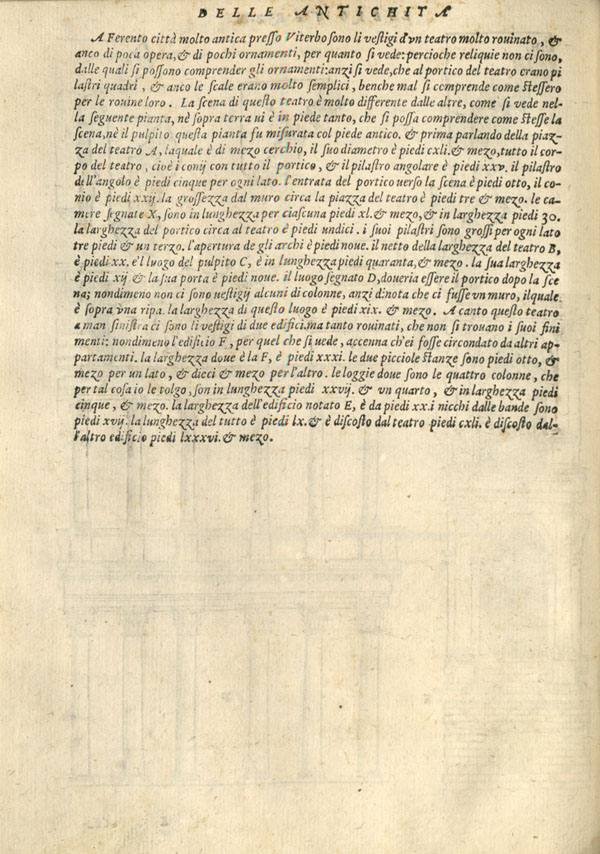 DELLE ANTICHITA
A Ferento città molto antica presso Viterbo sono li vestigi d'vn teatro molto rouinato, &
anco di poca opera, & di pochi ornamenti, per quanto si vede: percioche reliquie non ci sono,
dalle quali si possono comprender gli ornamenti: anzi si vede, che al portico del teatro erano pi
lastri quadri, & anco le scale erano molto semplici, benche mal si comprende come stessero
per le rouine loro. La scena di questo teatro è molto differente dalle altre, come si vede nel-
la seguente pianta, nè sopra terra ui è in piede tanto, che si possa comprendere come stesse la
scena, nè il pulpito questa pianta fu misurata col piede antico. & prima parlando della piaz-
za del teatro A, laquale è di mezo cerchio, il suo diametro è piedi cxli. & mezo, tutto il cor-
po del teatro, cioè i conij con tutto il portico, & il pilastro angolare è piedi xxv. il pilastro
dell'angolo è piedi cinque per ogni lato. l'entrata del portico uerso la scena è piedi otto, il co-
nio è piedi xxij. la grossezza dal muro circa la piazza del teatro è piedi tre & mezo. le ca-
mere segnate X, sono in lunghezza per ciascuna piedi xl. & mezo, & in larghezza piedi 30.
la larghezza del portico circa al teatro è piedi undici. i suoi pilastri sono grossi per ogni lato
tre piedi & un terzo. l'apertura de gli archi è piedi noue. il netto della larghezza del teatro B,
è piedi xx. e'l luogo del pulpito C, è in lunghezza piedi quaranta, & mezo. la sua larghezza
è piedi xij & la sua porta è piedi noue. il luogo segnato D, doueria essere il portico dopo la sce
na; nondimeno non ci sono uestigij alcuni di colonne, anzi dinota che ci fusse vn muro, ilquale
è sopra vna ripa. la larghezza di questo luogo è piedi xix. & mezo. A canto questo teatro
a man sinistra ci sono li vestigi di due edifici, ma tanto rouinati, che non si trouano i suoi fini
menti: nondimeno l'edificio F, per quel che si uede, accenna ch'ei fosse circondato da altri ap-
partamenti. la larghezza doue è la F, è piedi xxxi. le due picciole stanze sono piedi otto, &
mezo per un lato, & dieci & mezo per l'altro. le loggie doue sono le quattro colonne, che
per tal cosa io le tolgo, son in lunghezza piedi xxvij. & vn quarto, & in larghezza piedi
cinque, & mezo. la larghezza dell'edificio notato E, è da piedi xx. i nicchi dalle bande sono
piedi xvij. la lunghezza del tutto è piedi lx. & è discosto dal teatro piedi cxli. è discosto dal-
l'altro edificio piedi lxxxvi. & mezo.